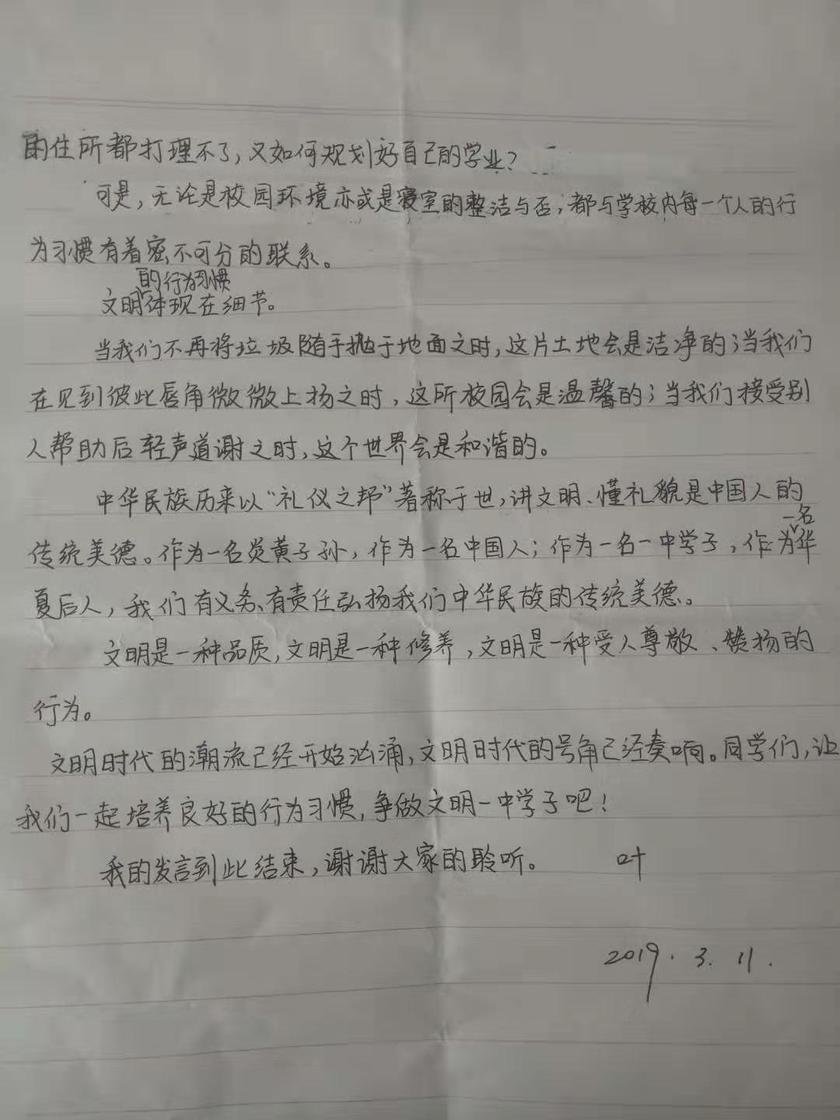 的住所都打理不了，又如何规划好自己的学业？
可是，无论是校园环境亦或是寝室的整洁与否，都与学校内每一个人的行
为习惯有着密不可分的联系。
的行为习惯
文明体现在细节。
当我们不再将垃圾随手抛于地面之时，这片土地会是洁净的；当我们
在见到彼此唇角微微上扬之时，这所校园会是温馨的；当我们接受别
人帮助后轻声道谢之时，这个世界会是和谐的。
中华民族历来以“礼仪之邦”著称于世，讲文明、懂礼貌是中国人的
一名
传统美德。作为一名炎黄子孙，作为一名中国人；作为一名一中学子，作为华
夏后人，我们有义务、有责任弘扬我们中华民族的传统美德。
文明是一种品质，文明是一种修养，文明是一种受人尊敬、赞扬的
行为。
文明时代的潮流已经开始汹涌，文明时代的号角已经奏响。同学们，让
我们一起培养良好的行为习惯，争做文明一中学子吧！
我的发言到此结束，谢谢大家的聆听。 叶
2019.3.11.